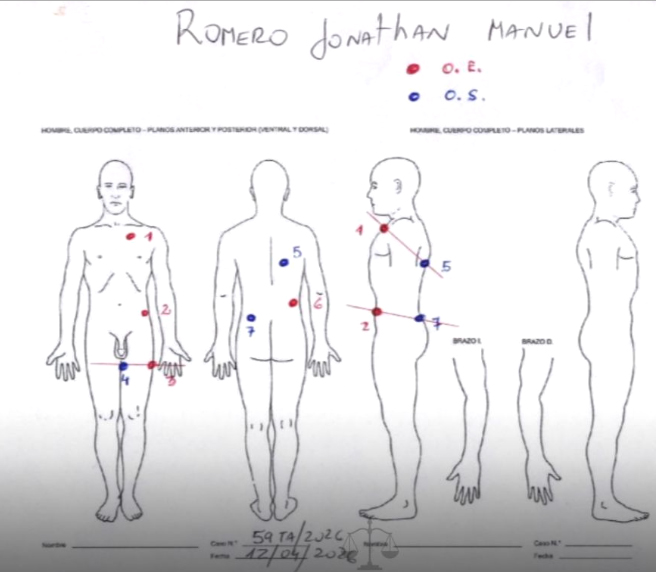 ROMERO JONATHAN MANUEL
O.E.
O.S.
HOMBRE, CUERPO COMPLETO – PLANOS ANTERIOR Y POSTERIOR (VENTRAL Y DORSAL)
HOMBRE, CUERPO COMPLETO – PLANOS LATERALES
1
2
4
3
5
6
7
1
5
2
7
BRAZO I.
BRAZO D.
Nombre
Caso N.°
Fecha 12/04/
Nombre
Caso N.°
Fecha